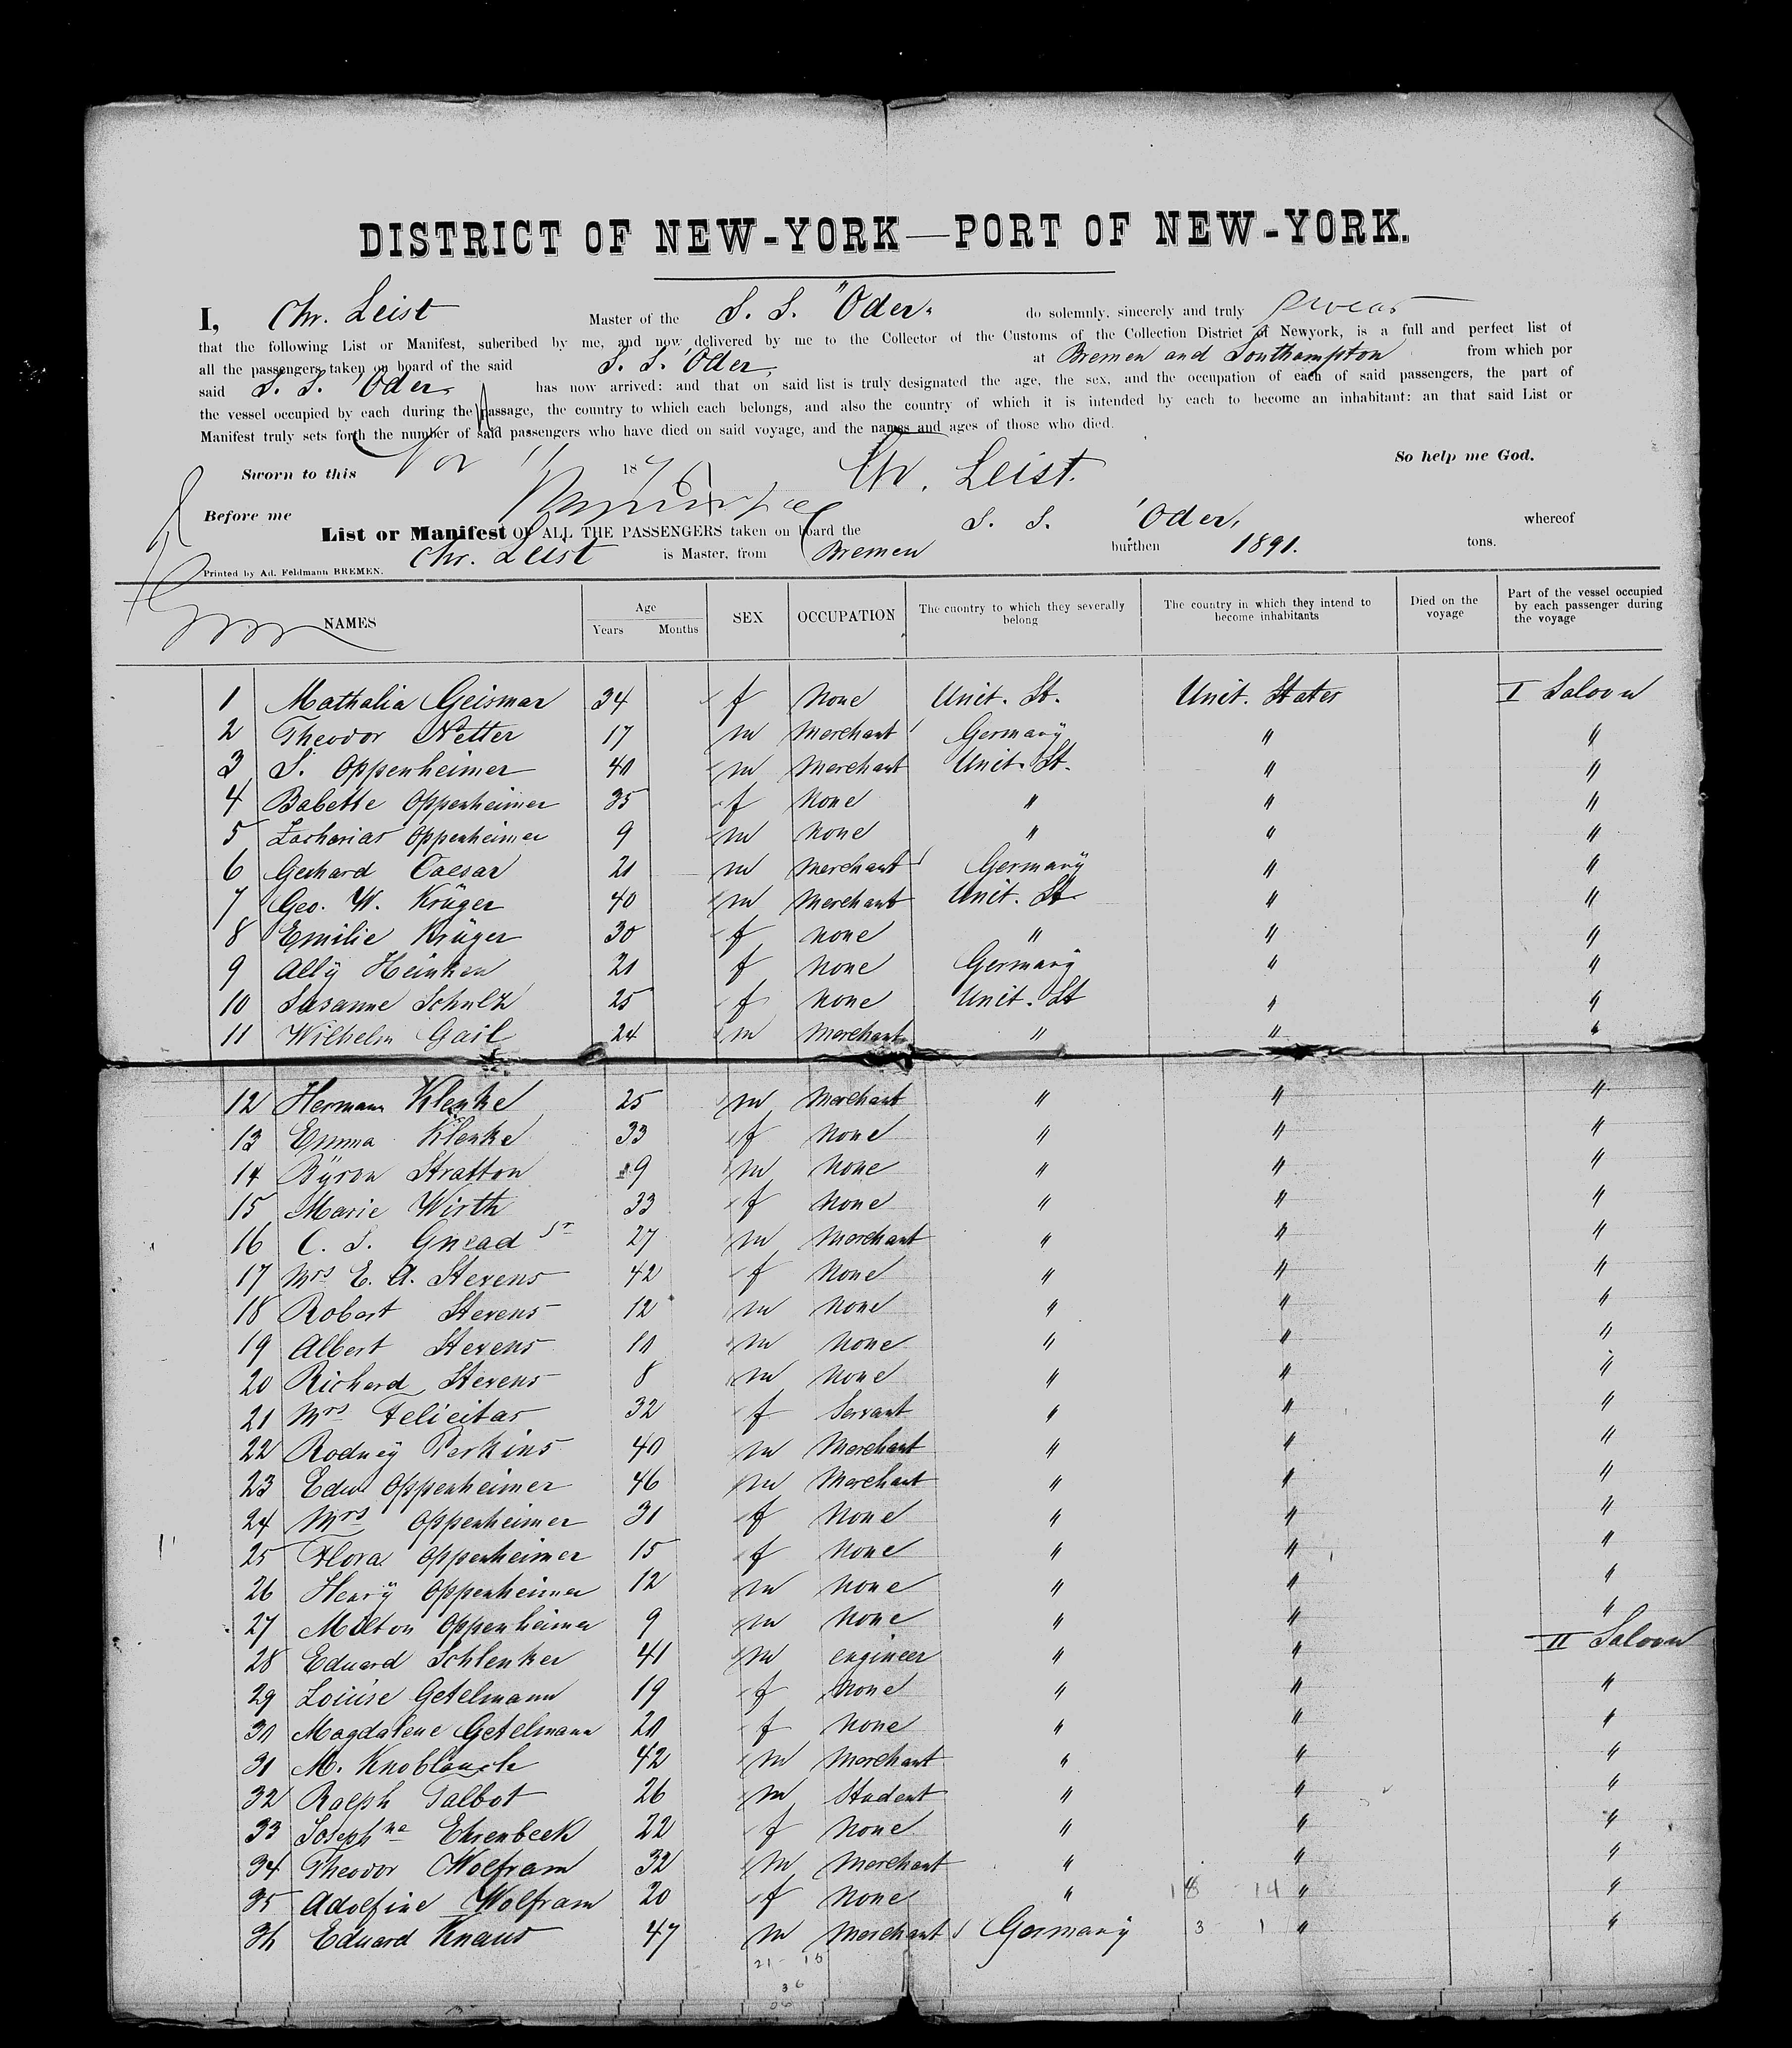 DISTRICT OF NEW-YORK—PORT OF NEW-YORK.
I, Chr. Leist Master of the S. S. "Oder" do solemnly, sincerely and truly swear
that the following List or Manifest, subcribed by me, and now delivered by me to the Collector of the Customs of the Collection District of Newyork, is a full and perfect list of
all the passengers taken on board of the said S. S. Oder, at Bremen and Southampton from which por
said S. S. Oder, has now arrived: and that on said list is truly designated the age, the sex, and the occupation of each of said passengers, the part of
the vessel occupied by each during the passage, the country to which each belongs, and also the country of which it is intended by each to become an inhabitant: an that said List or
Manifest truly sets forth the number of said passengers who have died on said voyage, and the names and ages of those who died.
So help me God.
Sworn to this Nov 187 Chr. Leist.
Before me
List or Manifest OF ALL THE PASSENGERS taken on board the S. S. Oder, whereof
Chr. Leist is Master, from Bremen burthen 1891. tons.
Printed by Ad. Feldmann BREMEN.
NAMES Age Years Months SEX OCCUPATION The cuontry to which they severally belong The country in which they intend to become inhabitants Died on the voyage Part of the vessel occupied by each passenger during the voyage
1 Mathalia Geismar 34 f None Unit. St. Unit. States I Saloon
2 Theodor Netter 17 m Merchant Germany " "
3 S. Oppenheimer 40 m Merchant Unit. St. " "
4 Babette Oppenheimer 35 f None " " "
5 Zacharias Oppenheimer 9 m None " " "
6 Gerhard Caesar 21 m Merchant Germany " "
7 Geo. W. Krüger 40 m Merchant Unit. St. " "
8 Emilie Krüger 30 f None " " "
9 Ally Heinken 21 f None Germany " "
10 Susanne Schulz 25 f None Unit. St " "
11 Wilhelm Gail 24 m Merchant " " "
12 Hermann Klenke 25 m Merchant " " "
13 Emma Klenke 33 f None " " "
14 Byron Stratton 9 m None " " "
15 Marie Wirth 33 f None " " "
16 C. S. Gnead Sr 27 m Merchant " " "
17 Mrs E. A. Stevens 42 f None " " "
18 Robert Stevens 12 m None " " "
19 Albert Stevens 10 m None " " "
20 Richard Stevens 8 m None " " "
21 Mrs Felicitas 32 f Servant " " "
22 Rodney Perkins 40 m Merchant " " "
23 Edw Oppenheimer 46 m Merchant " " "
24 Mrs Oppenheimer 31 f None " " "
25 Flora Oppenheimer 15 f None " " "
26 Henry Oppenheimer 12 m None " " "
27 Milton Oppenheimer 9 m None " " "
28 Eduard Schlenker 41 m engineer " " II Saloon
29 Louise Getelmann 19 f None " " "
30 Magdalene Getelmann 20 f None " " "
31 M. Knoblauch 42 m Merchant " " "
32 Ralph Talbot 26 m Student " " "
33 Josephne Ehrenbeck 22 f None " " "
34 Theodor Wolfram 32 m Merchant " " "
35 Adolfine Wolfram 20 f None " " "
36 Eduard Knaus 47 m Merchant Germany 3 1 " "